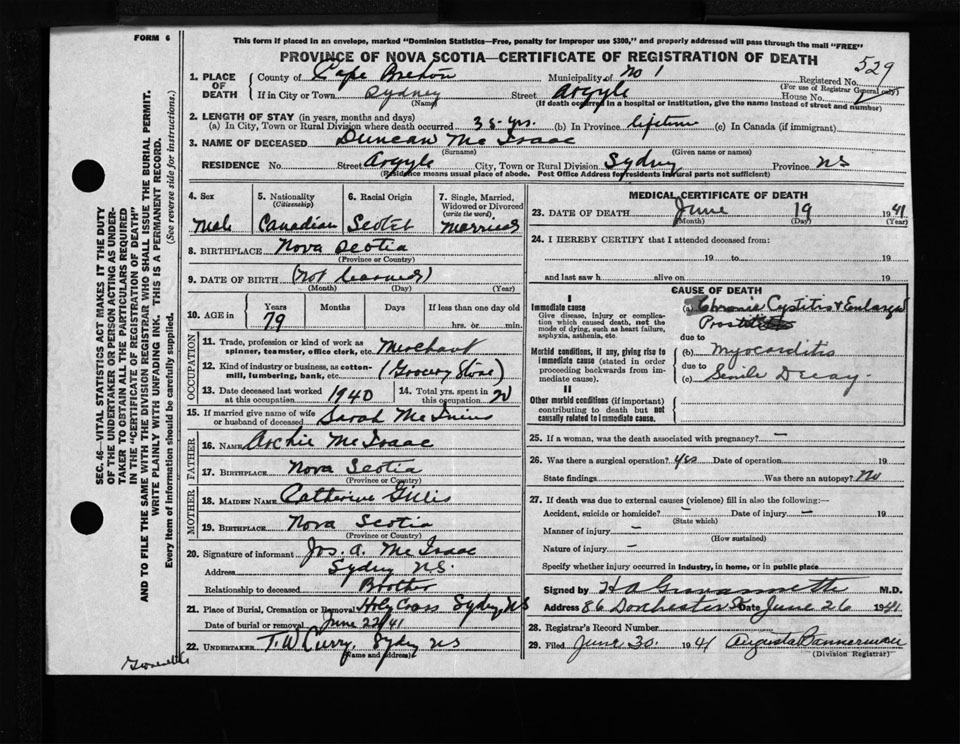 FORM 6
This form if placed in an envelope, marked "Dominion Statistics—Free, penalty for improper use $300," and properly addressed will pass through the mail "FREE"
PROVINCE OF NOVA SCOTIA—CERTIFICATE OF REGISTRATION OF DEATH
529
1. PLACE OF DEATH
County of Cape Breton Municipality of No 1 Registered No.
(For use of Registrar General only)
If in City or Town Sydney Street Argyle House No.
(Name) (If death occurred in a hospital or institution, give the name instead of street and number)
2. LENGTH OF STAY (in years, months and days)
(a) In City, Town or Rural Division where death occurred 35 yrs. (b) In Province lifetime (c) In Canada (if immigrant)
3. NAME OF DECEASED Duncan Mc Isaac
(Surname) (Given name or names)
RESIDENCE No. Street Argyle City, Town or Rural Division Sydney Province NS
(Residence means usual place of abode. Post Office Address for residents in rural parts not sufficient)
4. Sex
Male
5. Nationality
(Citizenship)
Canadian
6. Racial Origin
Scotch
7. Single, Married, Widowed or Divorced
(write the word)
Married
8. BIRTHPLACE Nova Scotia
(Province or Country)
9. DATE OF BIRTH (Not learned)
(Month) (Day) (Year)
10. AGE in
Years Months Days If less than one day old
79 hrs. or min.
OCCUPATION
11. Trade, profession or kind of work as
spinner, teamster, office clerk, etc. Merchant
12. Kind of industry or business, as cotton-
mill, lumbering, bank, etc. (Grocery Store)
13. Date deceased last worked
at this occupation 1940
14. Total yrs. spent in
this occupation 20
15. If married give name of wife
or husband of deceased Sarah Mc Innis
FATHER
16. NAME Archie Mc Isaac
17. BIRTHPLACE Nova Scotia
(Province or Country)
MOTHER
18. MAIDEN NAME Catherine Gillis
19. BIRTHPLACE Nova Scotia
(Province or Country)
20. Signature of informant Jos. A. Mc Isaac
Address Sydney N.S.
Relationship to deceased Brother
21. Place of Burial, Cremation or Removal Holy Cross Sydney, NS
Date of burial or removal June 22/41
22. UNDERTAKER T.W Curry, Sydney NS
(Name and address)
MEDICAL CERTIFICATE OF DEATH
23. DATE OF DEATH June 19 1941
(Month) (Day) (Year)
24. I HEREBY CERTIFY that I attended deceased from:
19 to 19
and last saw h alive on 19
CAUSE OF DEATH
I
Immediate cause
Give disease, injury or complica-
tion which caused death, not the
mode of dying, such as heart failure,
asphyxia, asthenia, etc.
(a) Chronic Cystitis & Enlarged
Prostate
due to
Morbid conditions, if any, giving rise to
immediate cause (stated in order
proceeding backwards from im-
mediate cause).
(b) Myocarditis
due to
(c) Senile Decay
II
Other morbid conditions (if important)
contributing to death but not
causally related to immediate cause.
25. If a woman, was the death associated with pregnancy? —
26. Was there a surgical operation? yes Date of operation 19
State findings Was there an autopsy? No
27. If death was due to external causes (violence) fill in also the following:—
Accident, suicide or homicide? — Date of injury — 19
(State which)
Manner of injury —
(How sustained)
Nature of injury —
Specify whether injury occurred in industry, in home, or in public place
Signed by M.D.
Address 86 Dorchester St Date June 26 1941
28. Registrar's Record Number
29. Filed June 30 1941 Augusta Bannerman
(Division Registrar)
SEC. 46—VITAL STATISTICS ACT MAKES IT THE DUTY
OF THE UNDERTAKER OR PERSON ACTING AS UNDER-
TAKER TO OBTAIN ALL THE PARTICULARS REQUIRED
IN THE "CERTIFICATE OF REGISTRATION OF DEATH"
AND TO FILE THE SAME WITH THE DIVISION REGISTRAR WHO SHALL ISSUE THE BURIAL PERMIT.
WRITE PLAINLY WITH UNFADING INK. THIS IS A PERMANENT RECORD.
Every item of information should be carefully supplied. (See reverse side for instructions.)